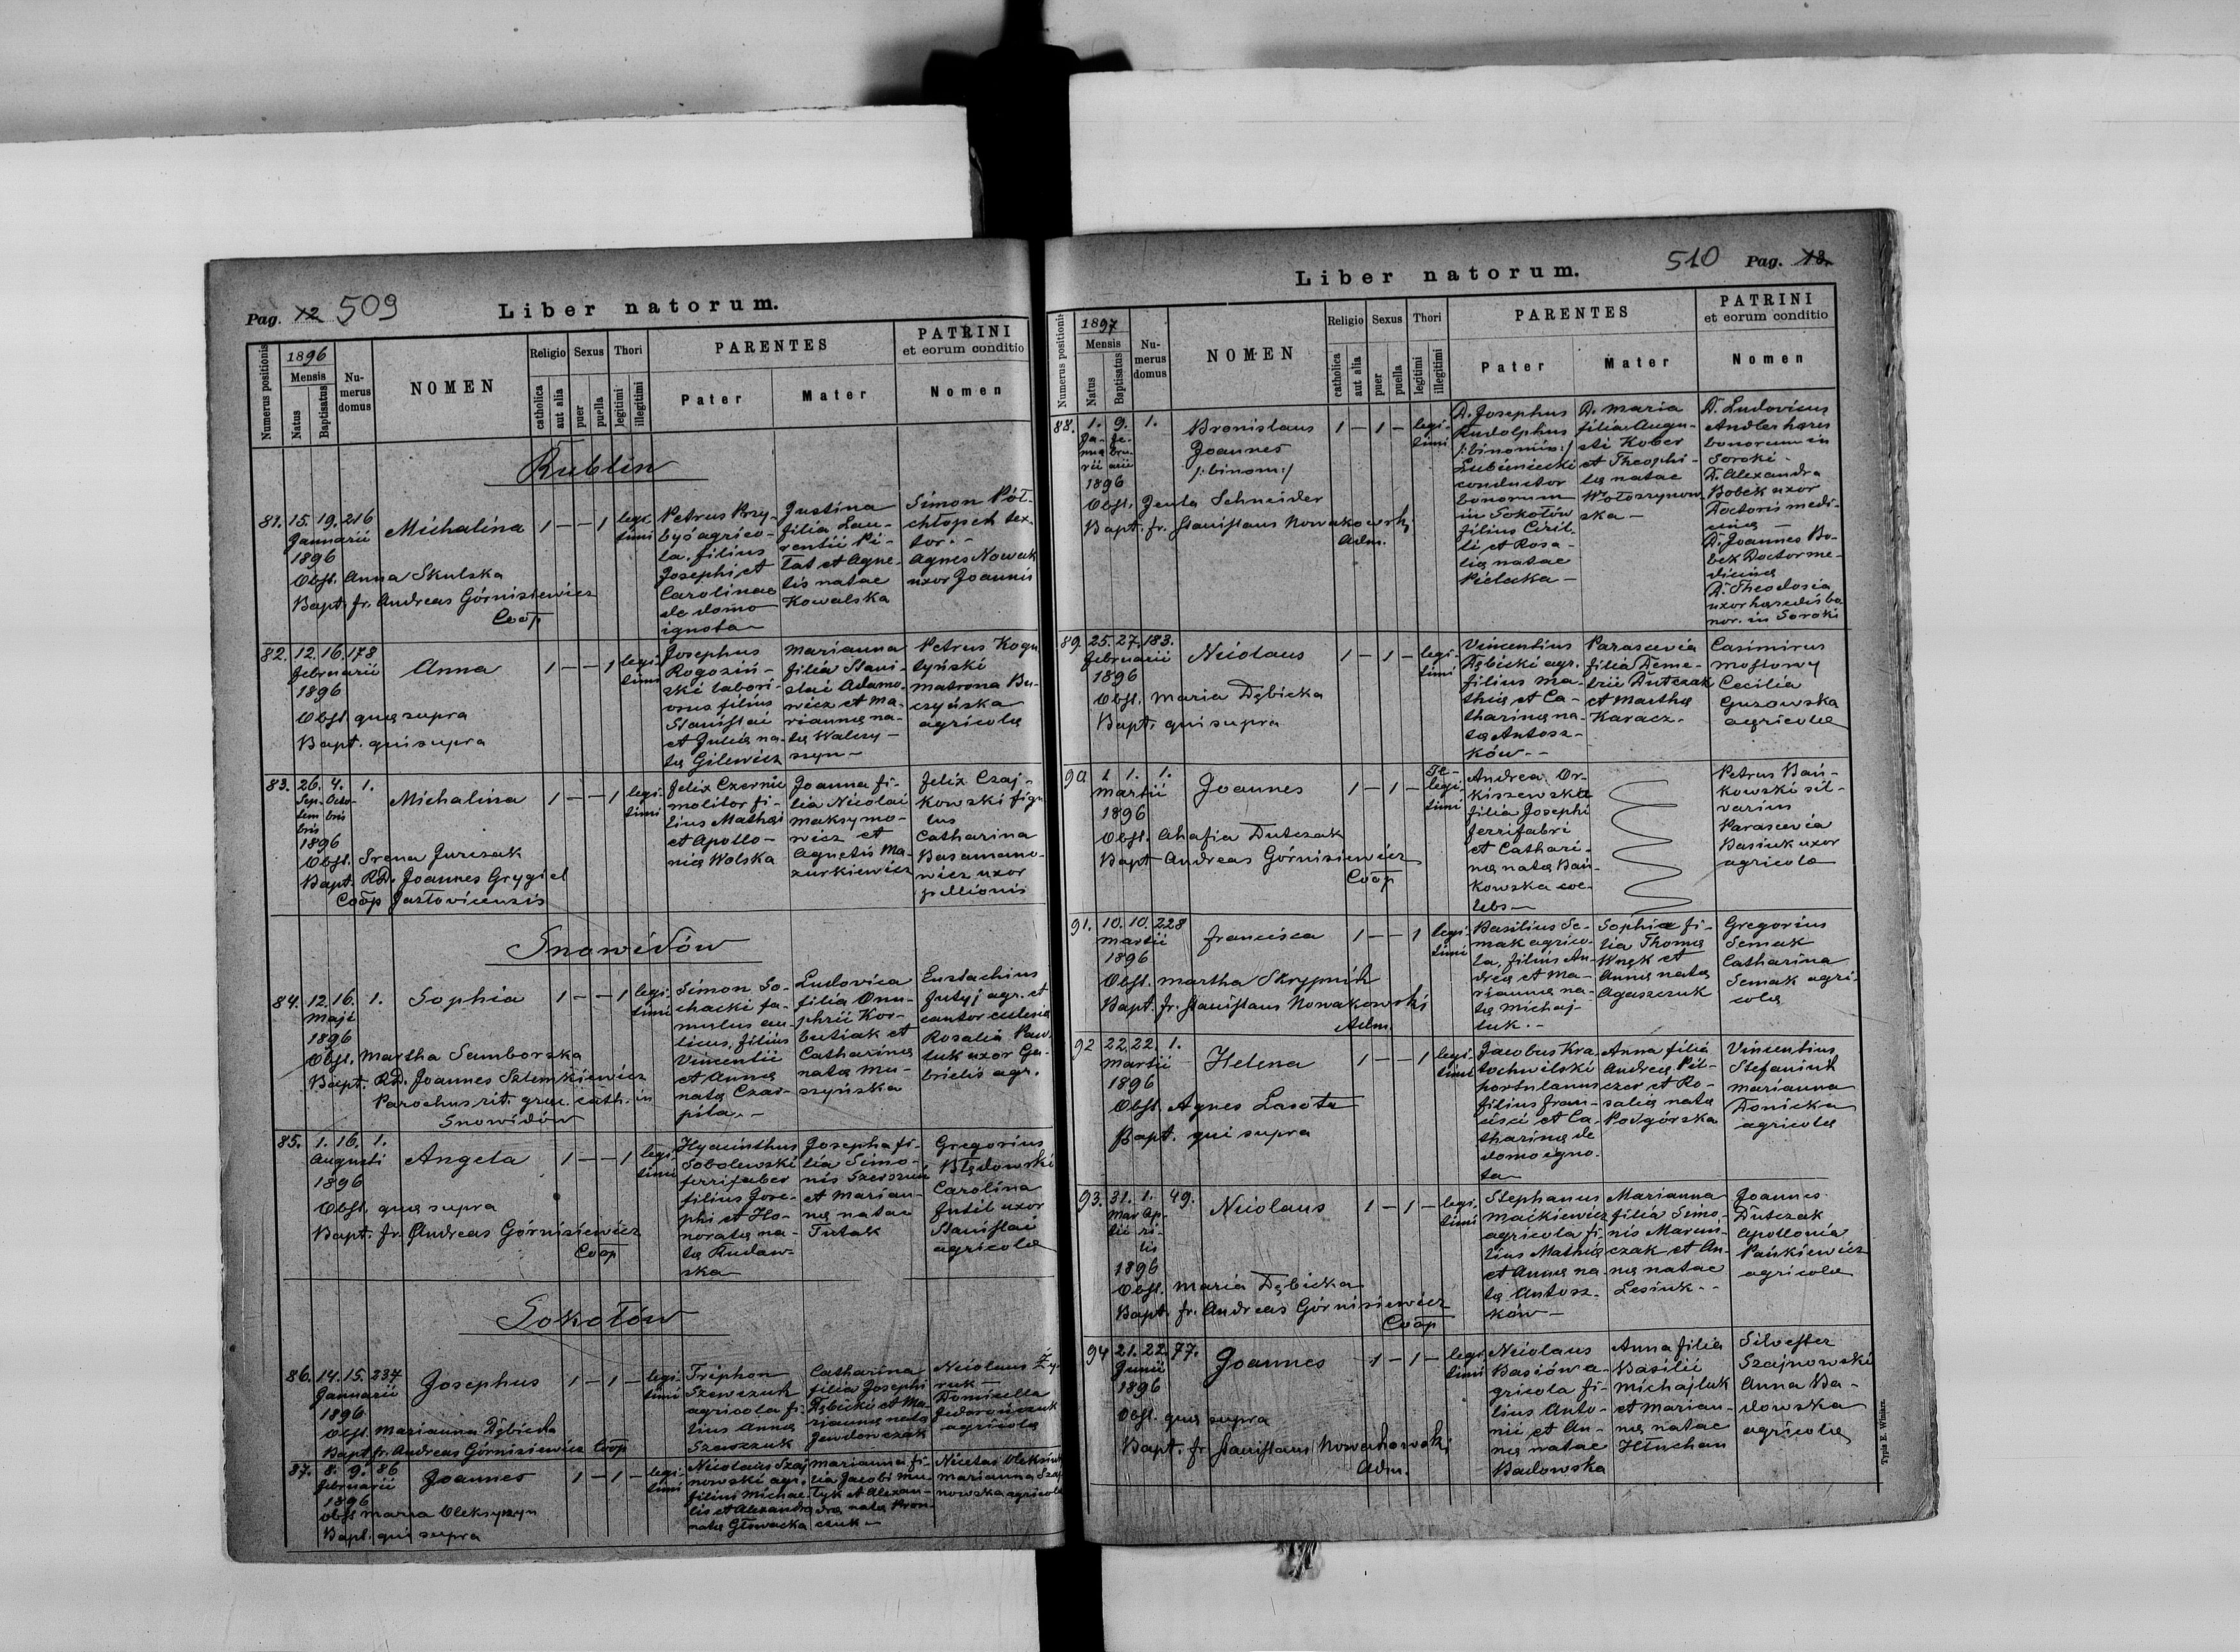 Pag. 12 509
Liber natorum.
Numerus positionis
1896
Mensis
Natus
Baptisatus
Nu-
merus
domus
NOMEN
Religio
catholica
aut alia
Sexus
puer
puella
Thori
legitimi
illegitimi
PARENTES
Pater
Mater
PATRINI
et eorum conditio
Nomen
Rublin
81. 15. 19. 216
Januarii
1896
Michalina 1 — — 1 legi
timi
Obst. Anna Skulska
Bapt. fr. Andreas Górnisiewicz
Coop
Petrus Przy-
byś agrico-
la, filius
Josephi et
Carolinae
de domo
ignota
Justina
filia Lau-
rentii Pi-
tat et Agne-
tis natae
Kowalska
Simon Pół-
chłopek tex-
tor.-
Agnes Nowak
uxor Joannis
82. 12. 16. 178
Februarii
1896
Anna 1 — — 1 legi
timi
Obst. quae supra
Bapt. qui supra
Josephus
Rogoziń-
ski labori-
osus filius
Stanislai
et Julia na-
ta Gilewicz
Marianna
filia Stani-
slai Adamo-
wicz et Ma-
rianna na-
ta Walczy-
szyn —
Petrus Kogu
tyński
Matrona Bu-
czyńska
agricolae
83. 26. 4. 1.
Sep- Octo-
tem bris
bris
1896
Michalina 1 — — 1 legi-
timi
Obst. Irena Jurczak
Bapt. RD. Joannes Grygiel
Coop Jazłovicensis
Felix Czernie
molitor fi-
lius Mathaei
et Apollo-
nia Wolska
Joanna fi-
lia Nicolai
Maksymo-
wicz et
Agnetis Ma-
zurkiewicz
Felix Czaj-
kowski figu
lus
Catharina
Basamano-
wicz uxor
pellionis
Snowidów
84. 12. 16. 1.
Maji
1896
Sophia 1 — — 1 legi-
timi
Obst. Martha Samborska
Bapt. RD. Joannes Szlemkiewicz
Parochus rit. graec. cath. in
Snowidów
Simon So-
chacki fa-
mulus au-
licus, filius
Vincentii
et Anna
nata Czar-
pita.-
Ludovica
filia Onu-
phrii Kor-
butiak et
Catharina
nata Mu-
szyńska
Eustachius
Jutyj agr. et
cantor eclesiae
Rosalia Paw-
luk uxor Ga-
brielis agr.
85. 1. 16. 1.
Augusti
1896
Angela 1 — — 1 legi-
timi
Obst. quae supra
Bapt. fr. Andreas Górnisiewicz
Coop
Hyacinthus
Sobolewski
ferrifaber
filius Jose-
phi et Ho-
norata na-
ta Rudaw-
ska
Josepha fi-
lia Simo-
nis
et Marian-
na natae
Tutak
Gregorius
Błędowski
Carolina
Jutil uxor
Stanislai
agricolae
Sokołów
86. 14. 15. 237
Januarii
1896
Josephus 1 — 1 — legi-
timi
Obst. Marianna Dębicka
Bapt. fr. Andreas Górnisiewicz Coop
Triphon
Szewczuk
agricola fi-
lius Anna
Szewczuk
Catharina
filia Josephi
Dębicki et Ma-
rianna nata
Jewdowczak
Nicolaus Ży-
ruk —
Domicella
Fedorończuk
agricolae
87. 8. 9. 86
Februarii
1896
Joannes 1 — 1 — legi-
timi
Obst Maria Oleksyszyn
Bapt. qui supra
Nicolaus Szaj
nowski agr.
filius Michae-
lis et Alexandra
nata Głowacka
Marianna fi-
lia Jacobi Mu-
tyk et Alexan-
dra nata Pron-
czuk —
Nicetas Oleksiuk
Marianna Szaj
nowska agricolae
Liber natorum.
510 Pag. 13.
Numerus positionis
1897
Mensis
Natus
Baptisatus
Nu-
merus
domus
NOMEN
Religio
catholica
aut alia
Sexus
puer
puella
Thori
legitimi
illegitimi
PARENTES
Pater
Mater
PATRINI
et eorum conditio
Nomen
88. 1. 9. 1.
Ja- Fe-
nua bru-
rii arii
1896
Bronislaus
Joannes
/:binom:/
1 — 1 — legi-
timi
Obst. Zenta Schneider
Bapt. fr. Stanislaus Nowakowski
Adm.
D. Josephus
Rudolphus
/:binomin:/
Lubieniecki
conductor
bonorum
in Sokołów
filius Ciril-
li et Rosa-
lia natae
Pielacka —
D. Maria
filia Augu-
sti Kober
et Theophi-
la natae
Wołoszynow
ska —
D. Ludovicus
Andler haeres
bonorum in
Soroki —
D. Alexandra
Bobek uxor
Doctoris medi-
cinae —
D. Joannes Bo-
bek Doctor me-
dicinae
D. Theodosia
uxor haeredis bo-
nor. in Soroki
89. 25. 27. 183.
Februarii
1896
Nicolaus 1 — 1 — legi-
timi
Obst. Maria Dębicka
Bapt. qui supra
Vincentius
Dębicki agr.
filius Ma-
thia et Ca-
tharina na-
ta Antosz-
ków.-
Parascevia
filia Deme-
trii Dutczak
et Martha
Karacz.-
Casimirus
Mostowy
Cecilia
Guzowska
agricolae
90 1. 1. 1.
Martii
1896
Joannes 1 — 1 — Il-
legi-
timi
Obst. Ahafia Dutczak
Bapt Andreas Górnisiewicz
Coop
Andrea Or-
kiszewska
filia Josephi
ferrifabri
et Cathari-
na nata Bań-
kowska coe-
lebs —
Petrus Bań-
kowski sil-
varius
Parascevia
Basiuk uxor
agricolae
91. 10. 10. 228
Martii
1896
Francisca 1 — — 1 legi-
timi
Obst. Martha Skrypnik
Bapt. fr. Stanislaus Nowakowski
Adm.
Basilius Se-
mak agrico-
la, filius An-
drea et Ma-
rianna na-
ta Michaj-
luk.-
Sophia fi-
lia Thoma
Wnęk et
Anna nata
Agaszczuk
Gregorius
Semak
Catharina
Semak agri-
colae
92 22. 22. 1.
Martii
1896
Helena 1 — — 1 legi-
timi
Obst. Agnes Lasota
Bapt. qui supra
Jacobus Kra-
tochwilski
hortulanus
filius Fran-
cisci et Ca-
tharina de
domo igno-
ta
Anna filia
Andrea Pil-
czer et Ro-
salia nata
Podgórska
Vincentius
Stefaniuk
Marianna
Donicka
agricolae
93. 31. 1. 49.
Mar Ap-
tii ri-
lis
1896
Nicolaus 1 — 1 — legi-
timi
Obst. Maria Dębicka
Bapt. fr. Andreas Górnisiewicz
Coop
Stephanus
Maćkiewicz
agricola fi-
lius Mathia
et Anna na-
ta Antosz-
ków —
Marianna
filia Simo-
nis Marcin-
czak et An-
na natae
Lesiuk.-
Joannes
Dutczak
Apollonia
Pańkiewicz
agricolae
94 21. 22. 77.
Junii
1896
Joannes 1 — 1 — legi-
timi
Obst. quae supra
Bapt. fr. Stanislaus Nowakowski
Adm.
Nicolaus
Basiów a-
gricola fi-
lius Anto-
nii et An-
na natae
Badowska
Anna filia
Basilii
Michajluk
et Marian-
na natae
Hłuchan
Silvester
Szajnowski
Anna Ba-
dowska
agricolae
Typis E. Winiarz.